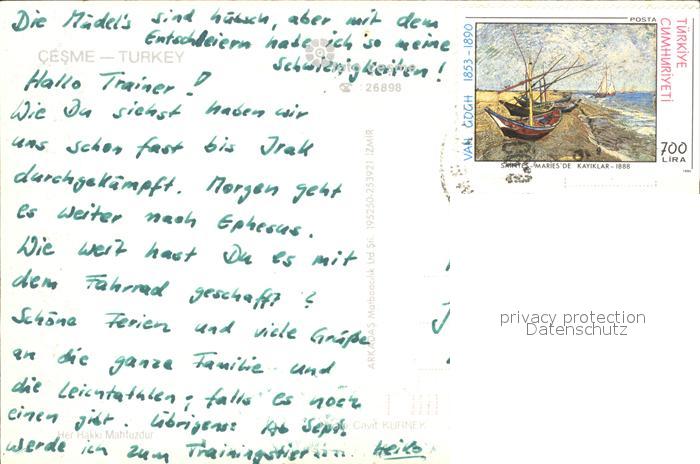 Die Mädels sind hübsch, aber mit dem
Entschleiern habe ich so meine
Schwierigkeiten!
ÇEŞME — TURKEY
26898
Hallo Trainer!
Wie Du siehst haben wir
uns schon fast bis Irak
durchgekämpft. Morgen geht
es weiter nach Ephesus.
Wie weit hast Du es mit
dem Fahrrad geschafft?
Schöne Ferien und viele Grüße
an die ganze Familie und
die Leichtathlen, falls es noch
einen gibt. Übrigens: Ab Sept.
werde ich zum Trainingstier... Heiko
Her Hakkı Mahfuzdur
Cavit KÜRNEK
ARKADAŞ Matbaacılık Ltd. Şti. 195250-253921 İZMİR
POSTA
VAN GOGH 1853-1890
TÜRKİYE CUMHURİYETİ
700
LİRA
SAINTES-MARIES'DE KAYIKLAR-1888
privacy protection
Datenschutz